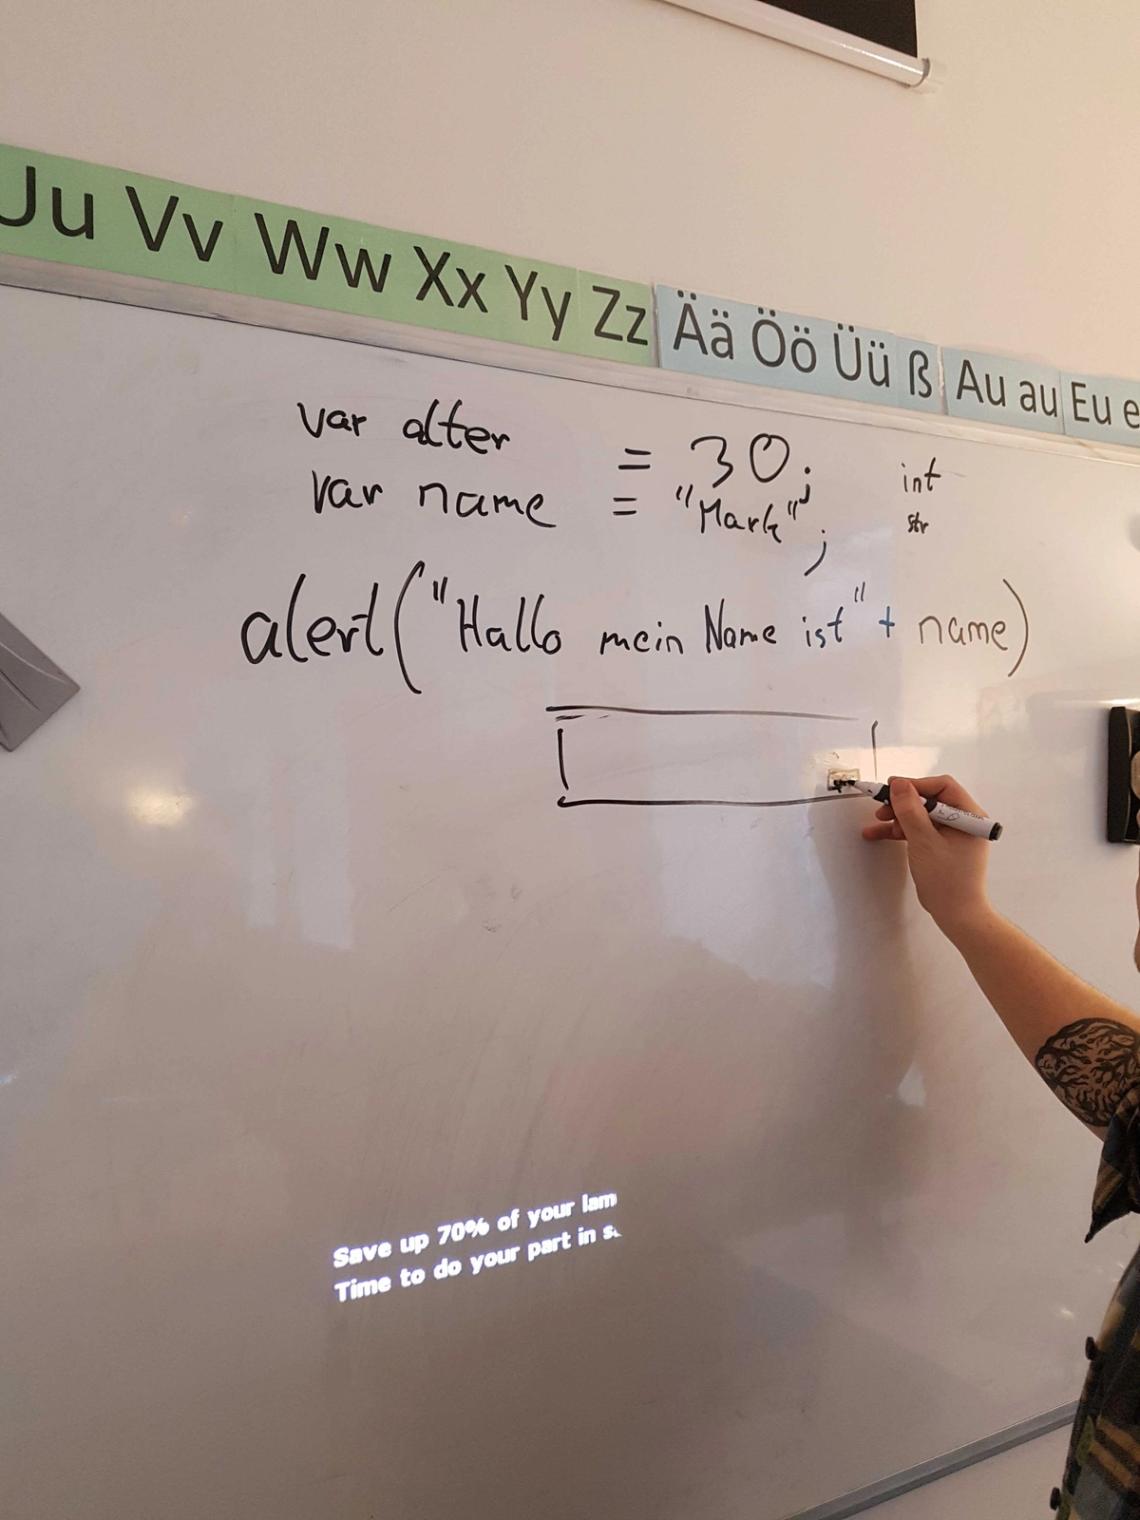 Uu Vv Ww Xx Yy Zz Ää Öö Üü ß Au au Eu e
var alter = 30; int
var name = "Mark"; str
alert("Hallo mein Name ist" + name)
Save up 70% of your lam
Time to do your part in